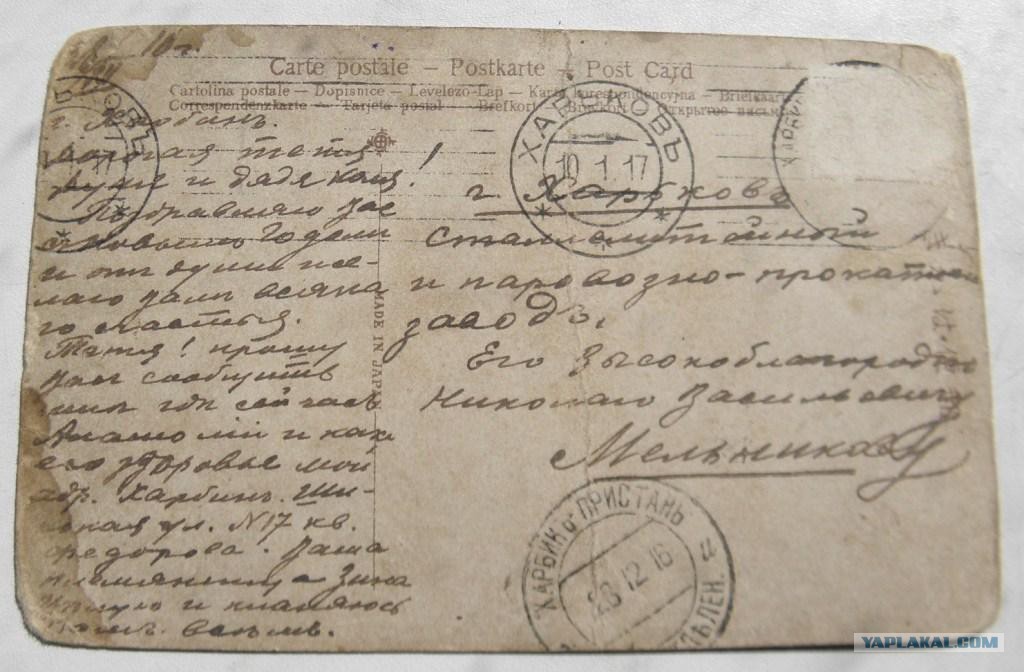 10 г.
Carte postale – Postkarte – Post Card
Cartolina postale – Dopisnice – Levelezö-Lap – Karta korespondencyjna – Briefkaart
Correspondenzkarte – Tarjeta postal – Brefkort – Brevkort – Открытое письмо
ХАРЬКОВЪ
10.1.17
г. Харбинъ.
дорогая тетя
и дядя Коля!
Поздравляю Вас
с Новым Годом
и от души же-
лаю Вам всяка
го счастья.
Тетя! прошу
Вас сообщить
мне где сейчасъ
и какъ
его здоровье мой
адр. Харбинъ. Ши-
ская ул. N17 кв.
Федорова. Ваша
племянница Зина
целую и кланяюсь
всем.
MADE IN JAPAN
г. Харьковъ
Сталелитейный
и паровозно-прокатный
заводъ.
Его Высокоблагородию
Николаю Васильевичу
Мельникову
ХАРБИН ПРИСТАНЬ
28 12 16
YAPLAKAL.COM